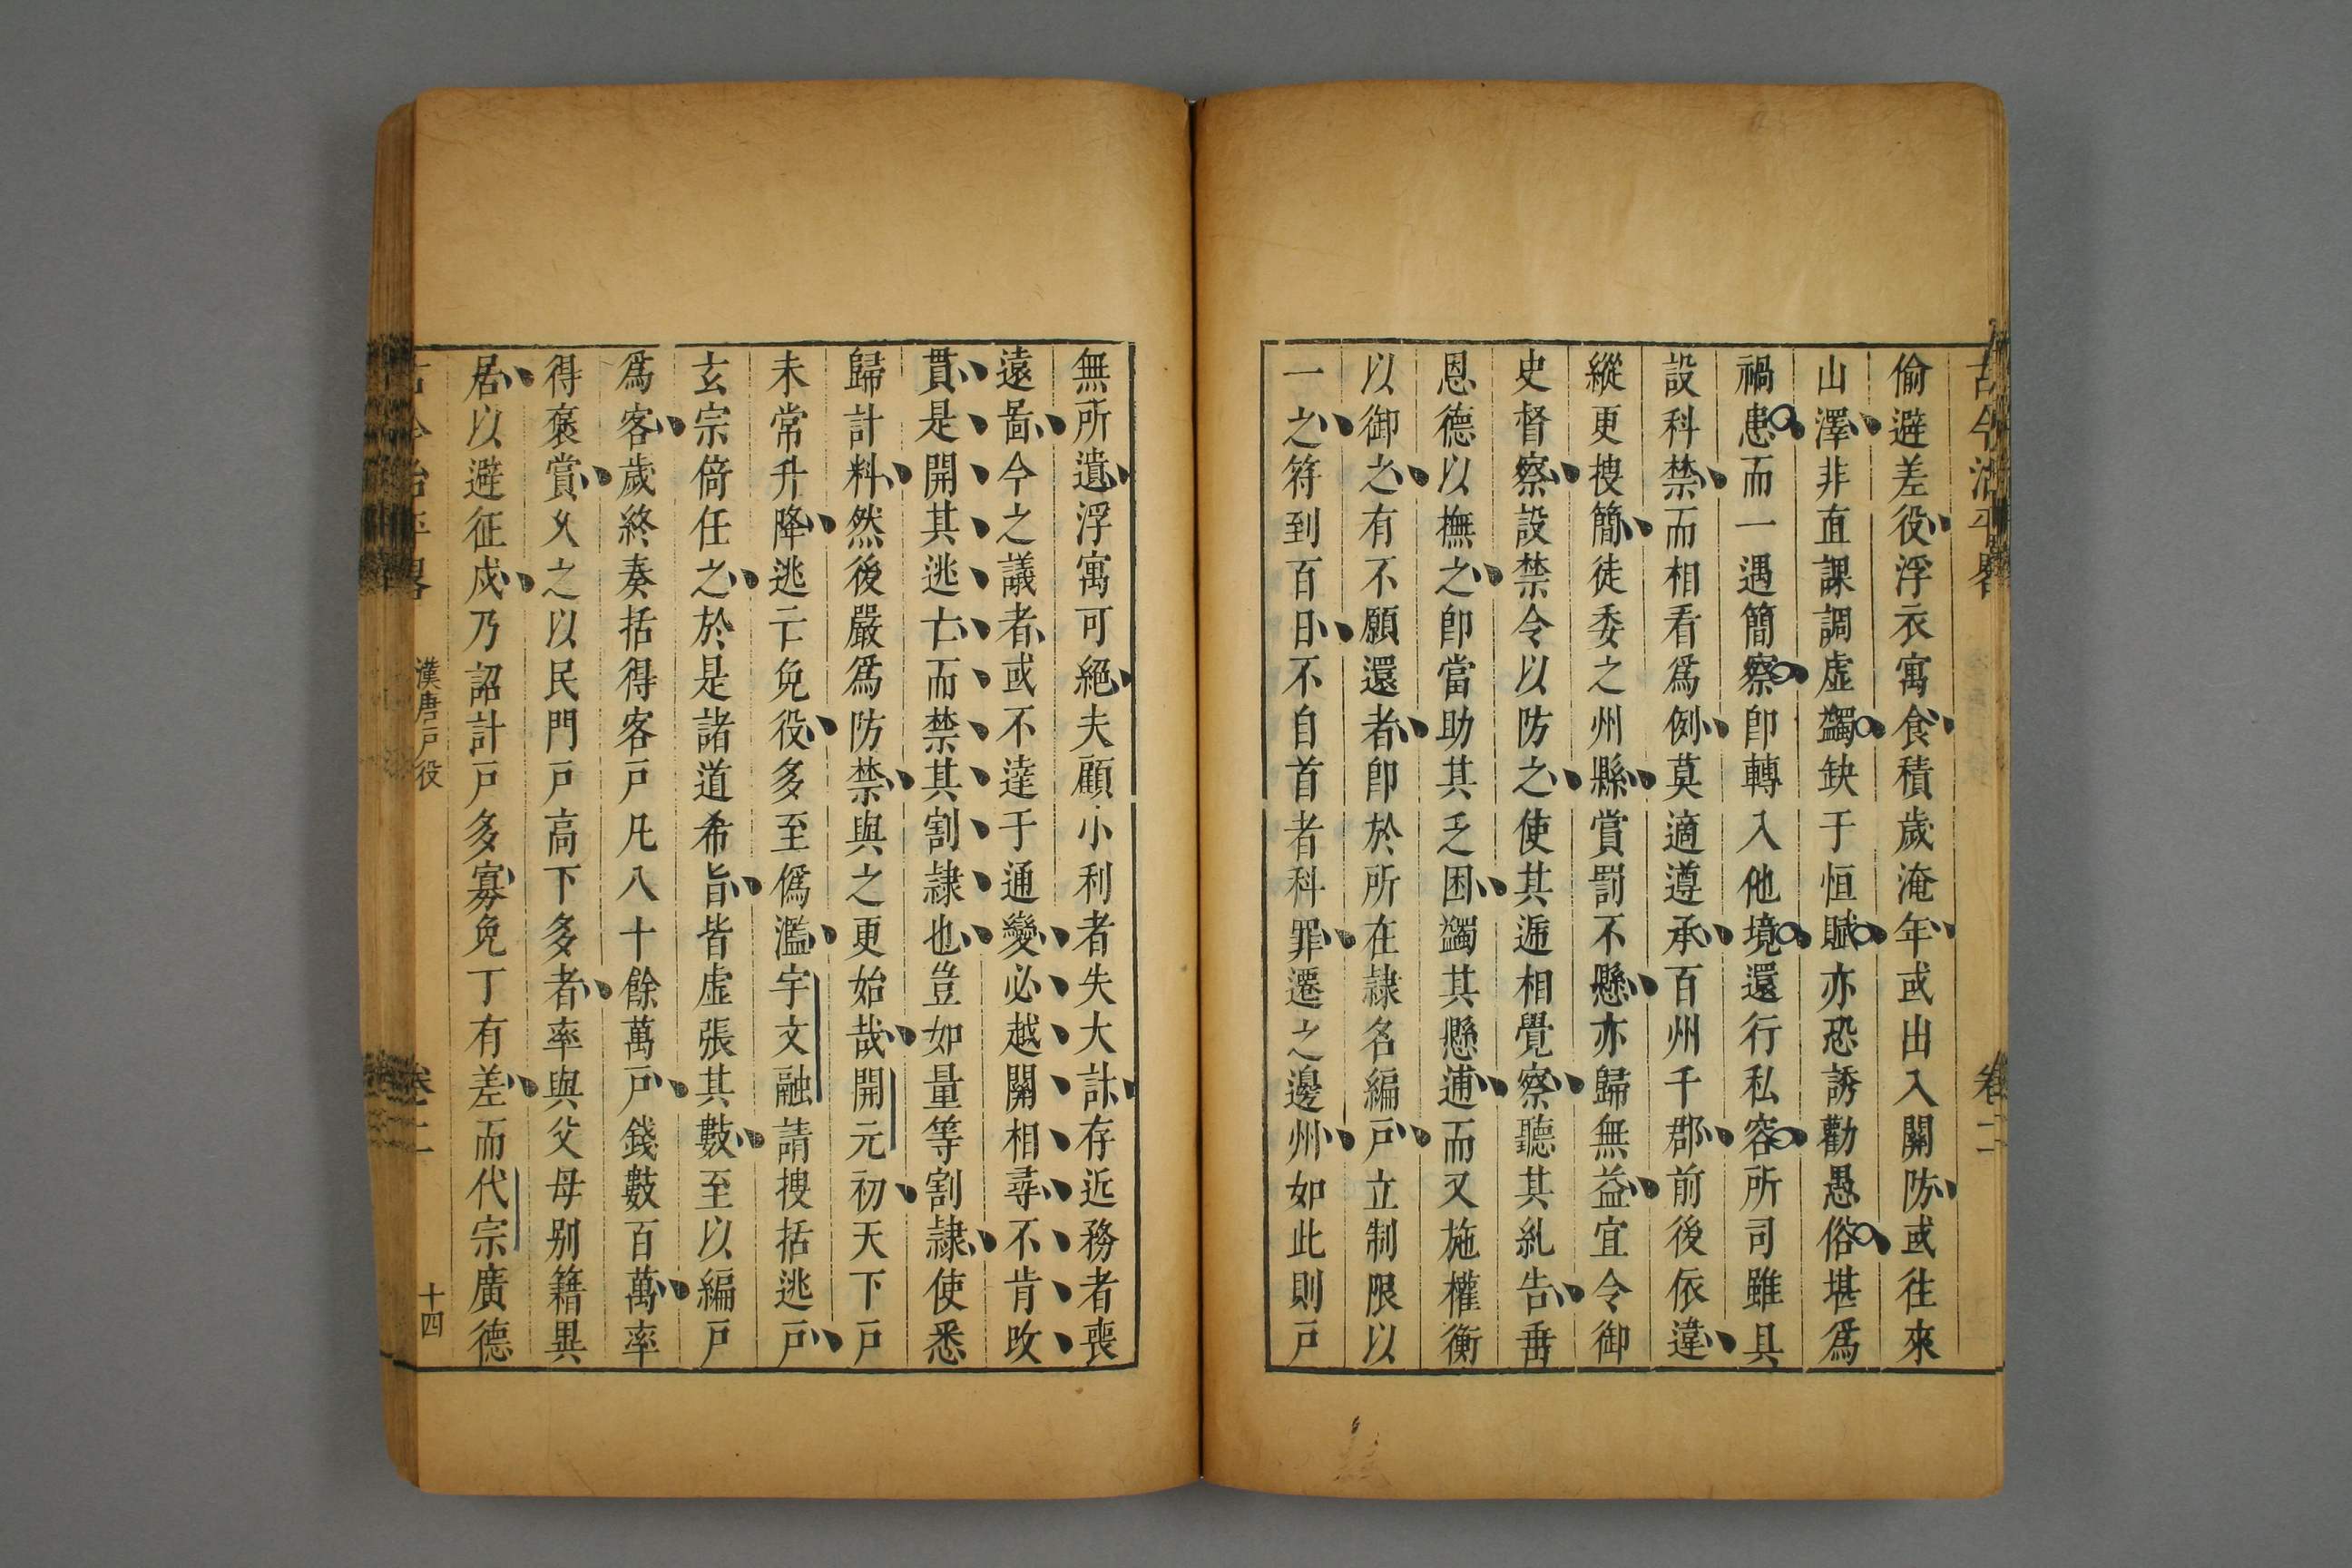 古今治平畧 卷二
偷避差役浮衣寓食積歲淹年或出入關防或往來
山澤非直課調虛蠲缺于恒賦亦恐誘勸愚俗堪爲
禍患而一遇簡察卽轉入他境還行私容所司雖具
設科禁而相看爲例莫適遵承百州千郡前後依違
縱更搜簡徒委之州縣賞罰不懸亦歸無益宜令御
史督察設禁令以防之使其遞相覺察聽其糺告垂
恩德以撫之卽當助其乏困蠲其懸逋而又施權衡
以御之有不願還者卽於所在隷名編戸立制限以
一之符到百日不自首者科罪遷之邊州如此則戸
無所遺浮寓可絕夫顧小利者失大計存近務者喪
遠啚今之議者或不達于通變必越關相尋不肯攺
貫是開其逃亡而禁其割隷也豈如量等割隷使悉
歸計料然後嚴爲防禁與之更始哉開元初天下戸
未常升降逃亡免役多至僞濫宇文融請搜括逃戸
玄宗倚任之於是諸道希旨皆虛張其數至以編戸
爲客歲終奏括得客戸凡八十餘萬戸錢數百萬率
得褒賞乆之以民門戸高下多者率與父母别籍異
居以避征戍乃詔計戸多寡免丁有差而代宗廣德
古今治平畧 漢唐戸役 卷二 十四